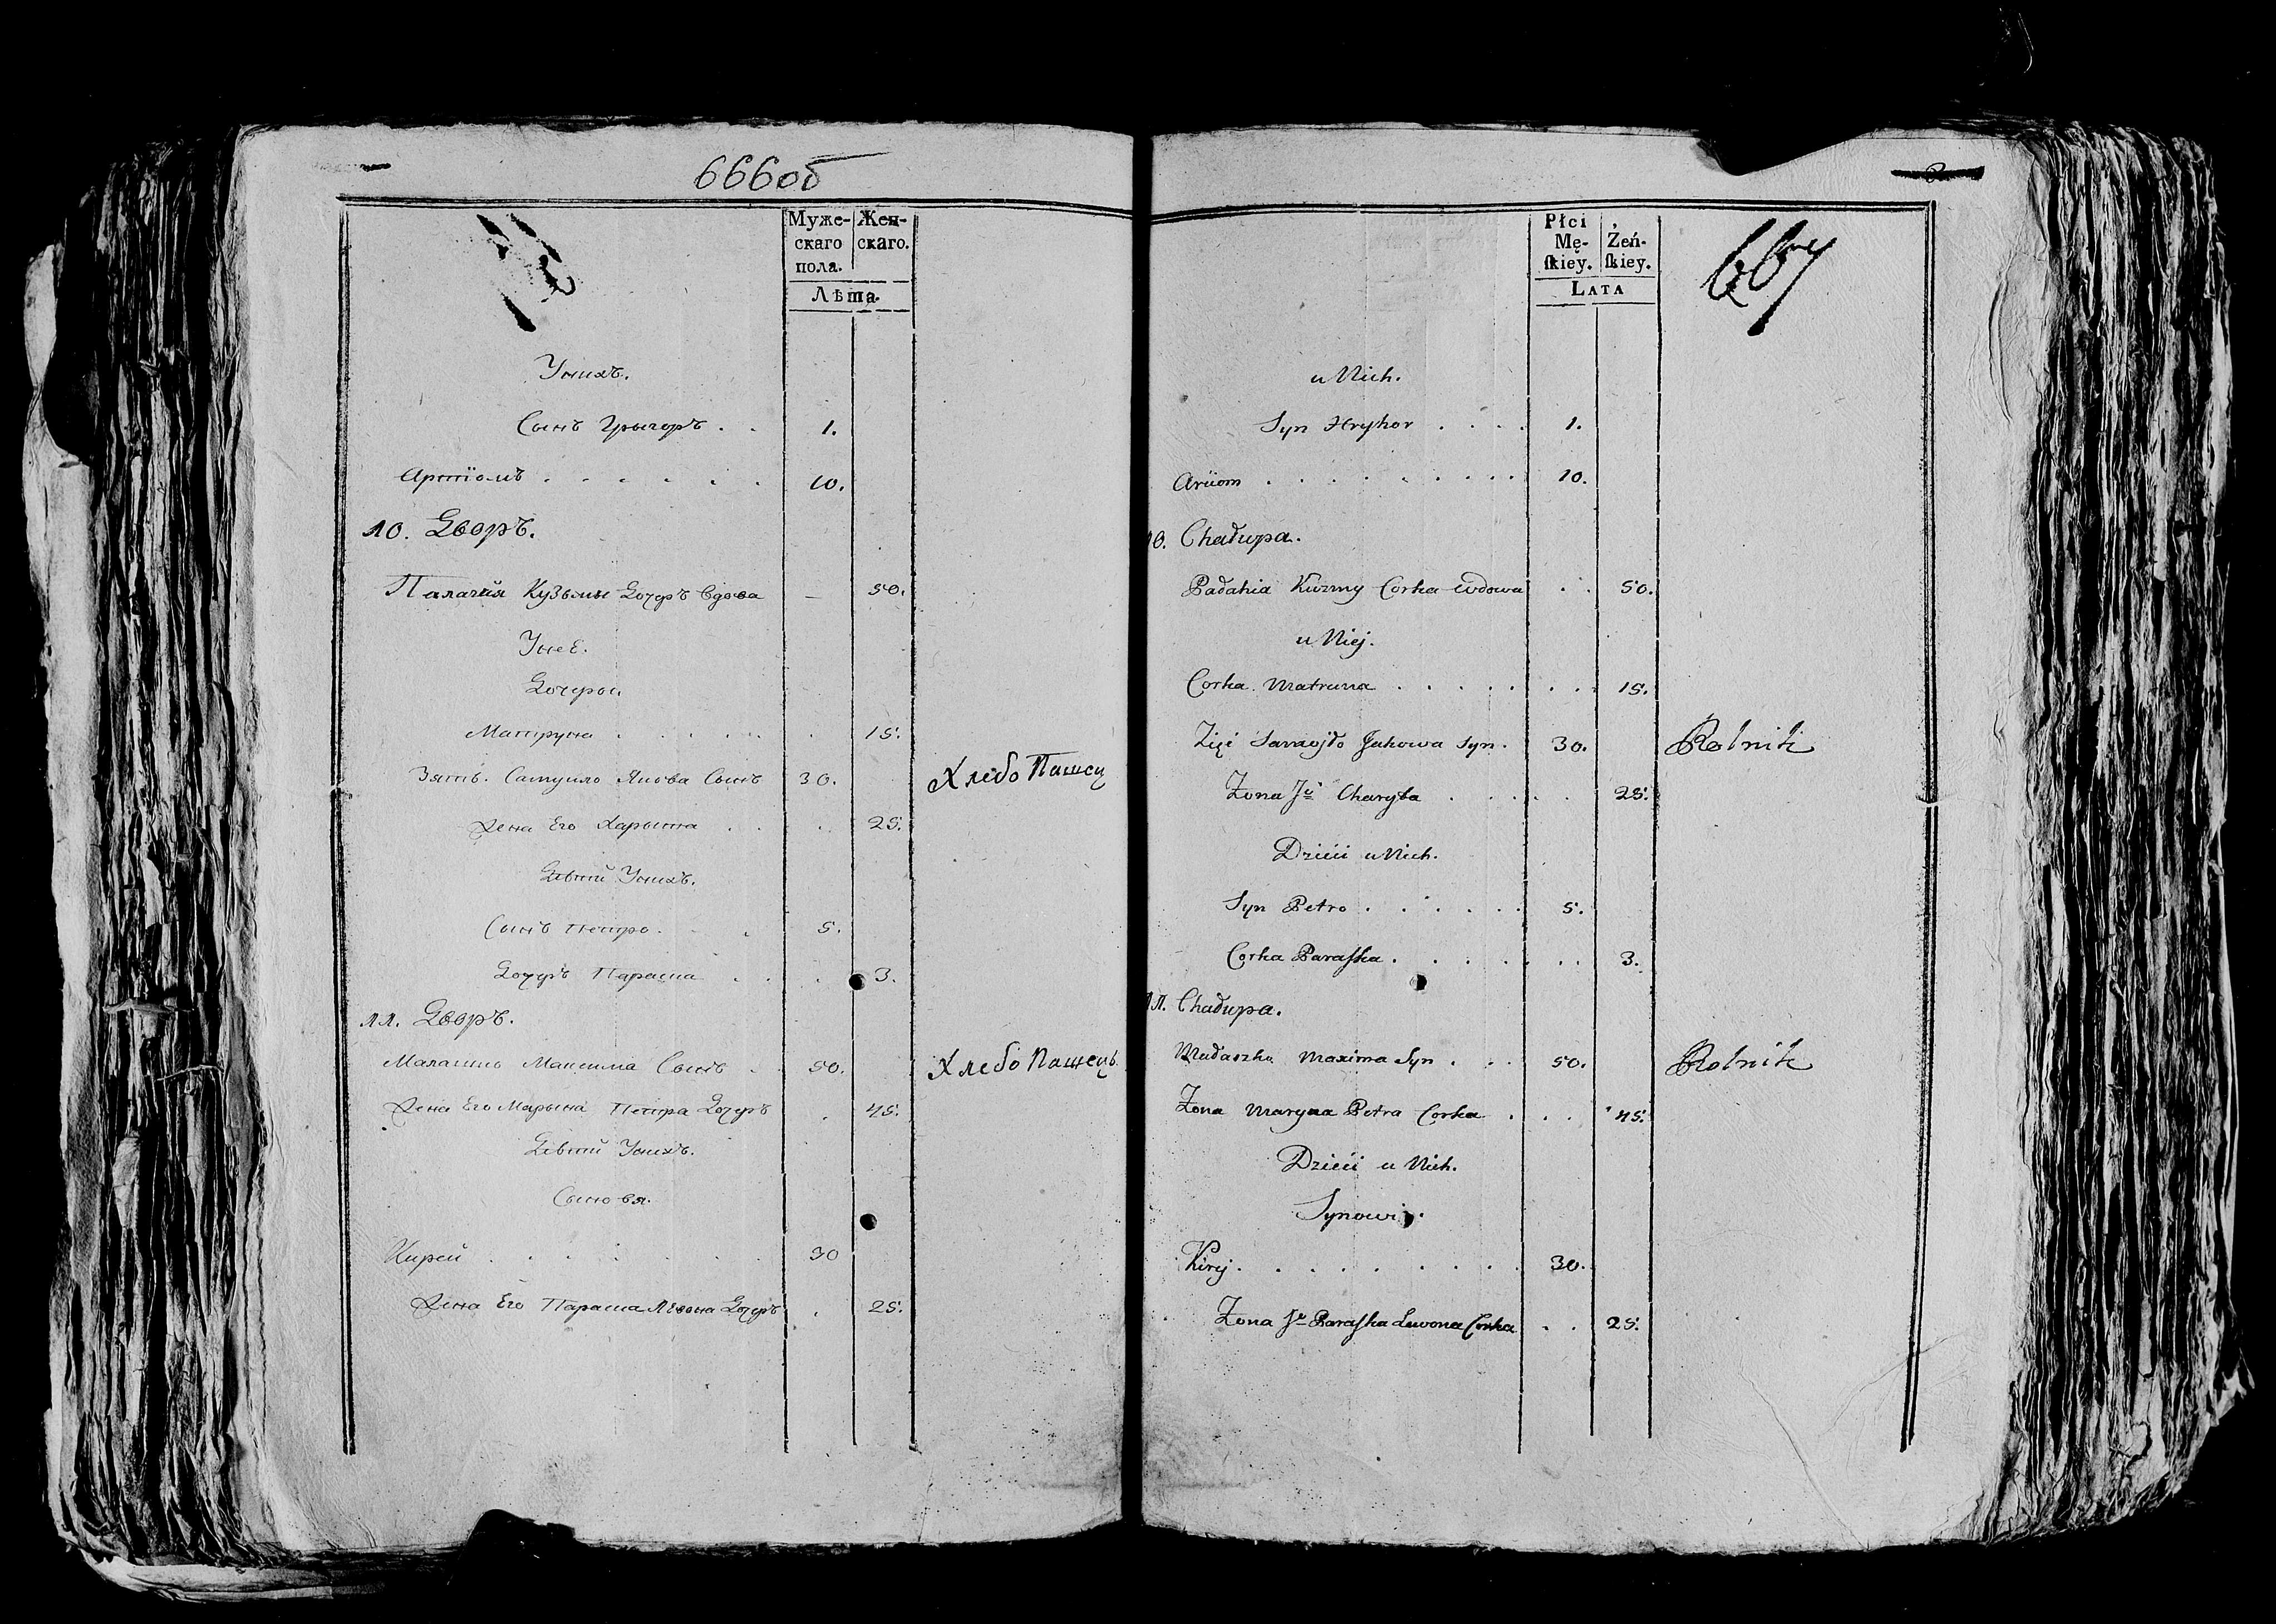 666об
Муже-
скаго
пола.
Жен-
скаго.
Лѣта.
Унихъ.
Сынъ Грыгоръ . . 1.
Артіомъ . . . . . . 10.
10. Дворъ.
Палагия Кузьмы Дочерь вдова — 50.
Унеё.
Дочеры.
Матруна . . . . . . 15.
Зять. Самуило Якова Сынъ 30. Хлебо Пашец
Жена Его Харытта . . . 25.
Дѣти Унихъ.
Сынъ Петро. . . 5.
Дочерь Параска . . . 3.
11. Дворъ.
Малашко Максима Сынъ . 50. Хлебо Пашецъ.
Жена Его Марына Петра Дочерь . 45.
Дѣти Унихъ.
Сыновя.
Кирей . . . . . . 30
Жена Его Параска Лёвона Дочерь . 25.
667
Płci
Mę-
ſkiey.
Żeń-
ſkiey.
LATA
u Nich.
Syn Hryhor . . . . 1.
Arciom . . . . . . . . . 10.
10. Chałupa.
Pałahia Kuzmy Corka wdowa . . 50.
u Niej.
Corka Matruna . . . . . . . . 15.
Zięć Samojło Jakowa Syn . 30. Rolnik
Zona Je͟g͟o͟ Charyta . . . . . 25.
Dzieci u Nich.
Syn Petro . . . . . . 5.
Corka Paraſka . . . . . . . . 3.
11. Chałupa.
Małaszko Maxima Syn . . . 50. Rolnik
Zona Maryna Petra Corka . . . 45.
Dzieci u Nich.
Synowie.
Kirej . . . . . . . . . 30.
Zona Je͟g͟o͟ Paraſka Lewona Corka . . 25.